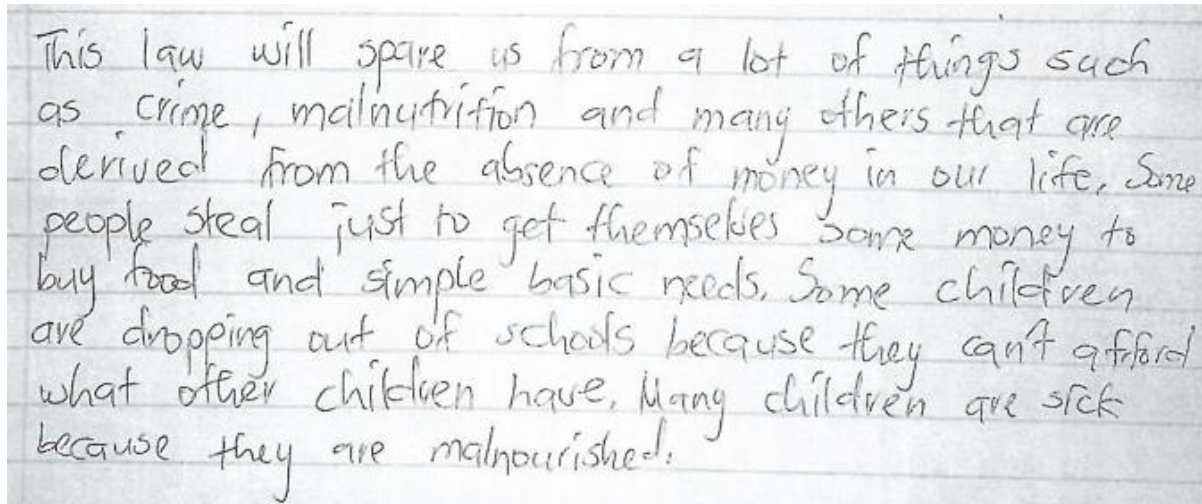 This law will spare us from a lot of things such
as crime, malnutrition and many others that are
derived from the absence of money in our life. Some
people steal just to get themselves some money to
buy food and simple basic needs. Some children
are dropping out of schools because they can't afford
what other children have. Many children are sick
because they are malnourished.